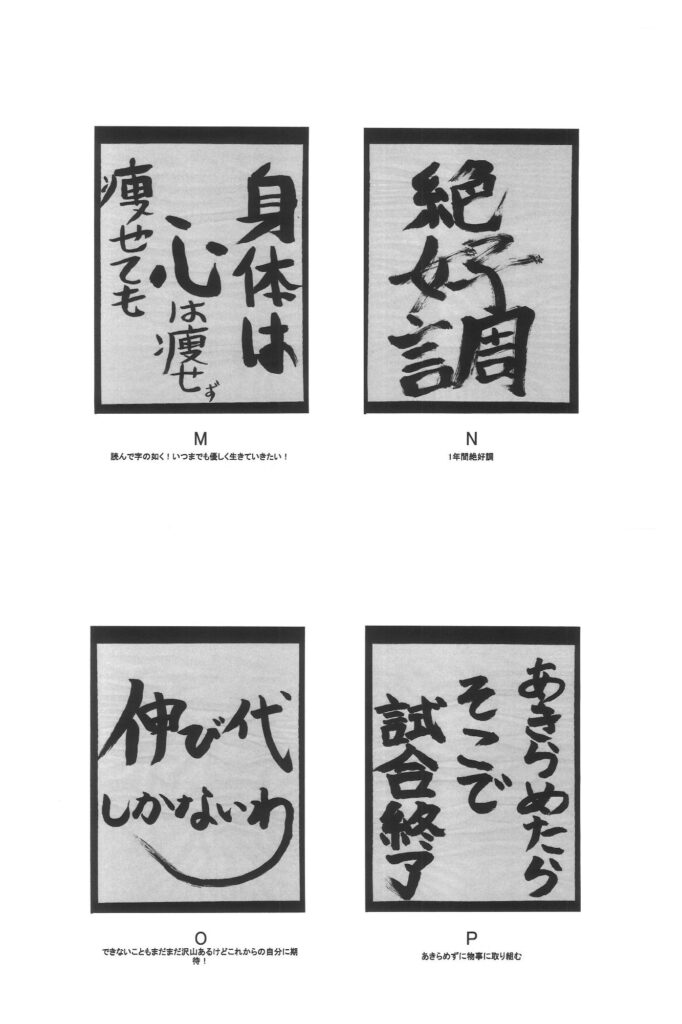 身体は
心は痩せず
痩せても
M
読んで字の如く！いつまでも優しく生きていきたい！
絶好調
N
1年間絶好調
伸び代
しかないわ
O
できないこともまだまだ沢山あるけどこれからの自分に期
待！
あきらめたら
そこで
試合終了
P
あきらめずに物事に取り組む